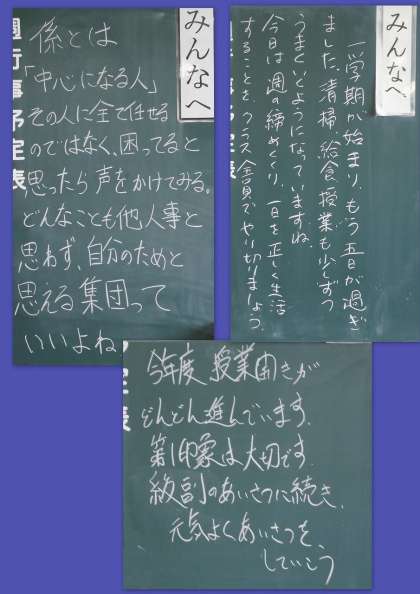 みんなへ
係とは
「中心になる人」
その人に全て任せる
のではなく、困ってると
思ったら声をかけてみる。
どんなことも他人事と
思わず、自分のためと
思える集団って
いいよね
週行事予定表
みんなへ
一学期が始まり、もう五日が過ぎ
ました。清掃、給食、授業も少しずつ
うまくいくようになっていますね。
今日は週の締めくくり、一日を正しく生活
することを、クラス全員でやり切りましょう。
今年度、授業開きが
どんどん進んでいます。
第1印象は大切です。
級訓のあいさつに続き、
元気よくあいさつを、
していこう